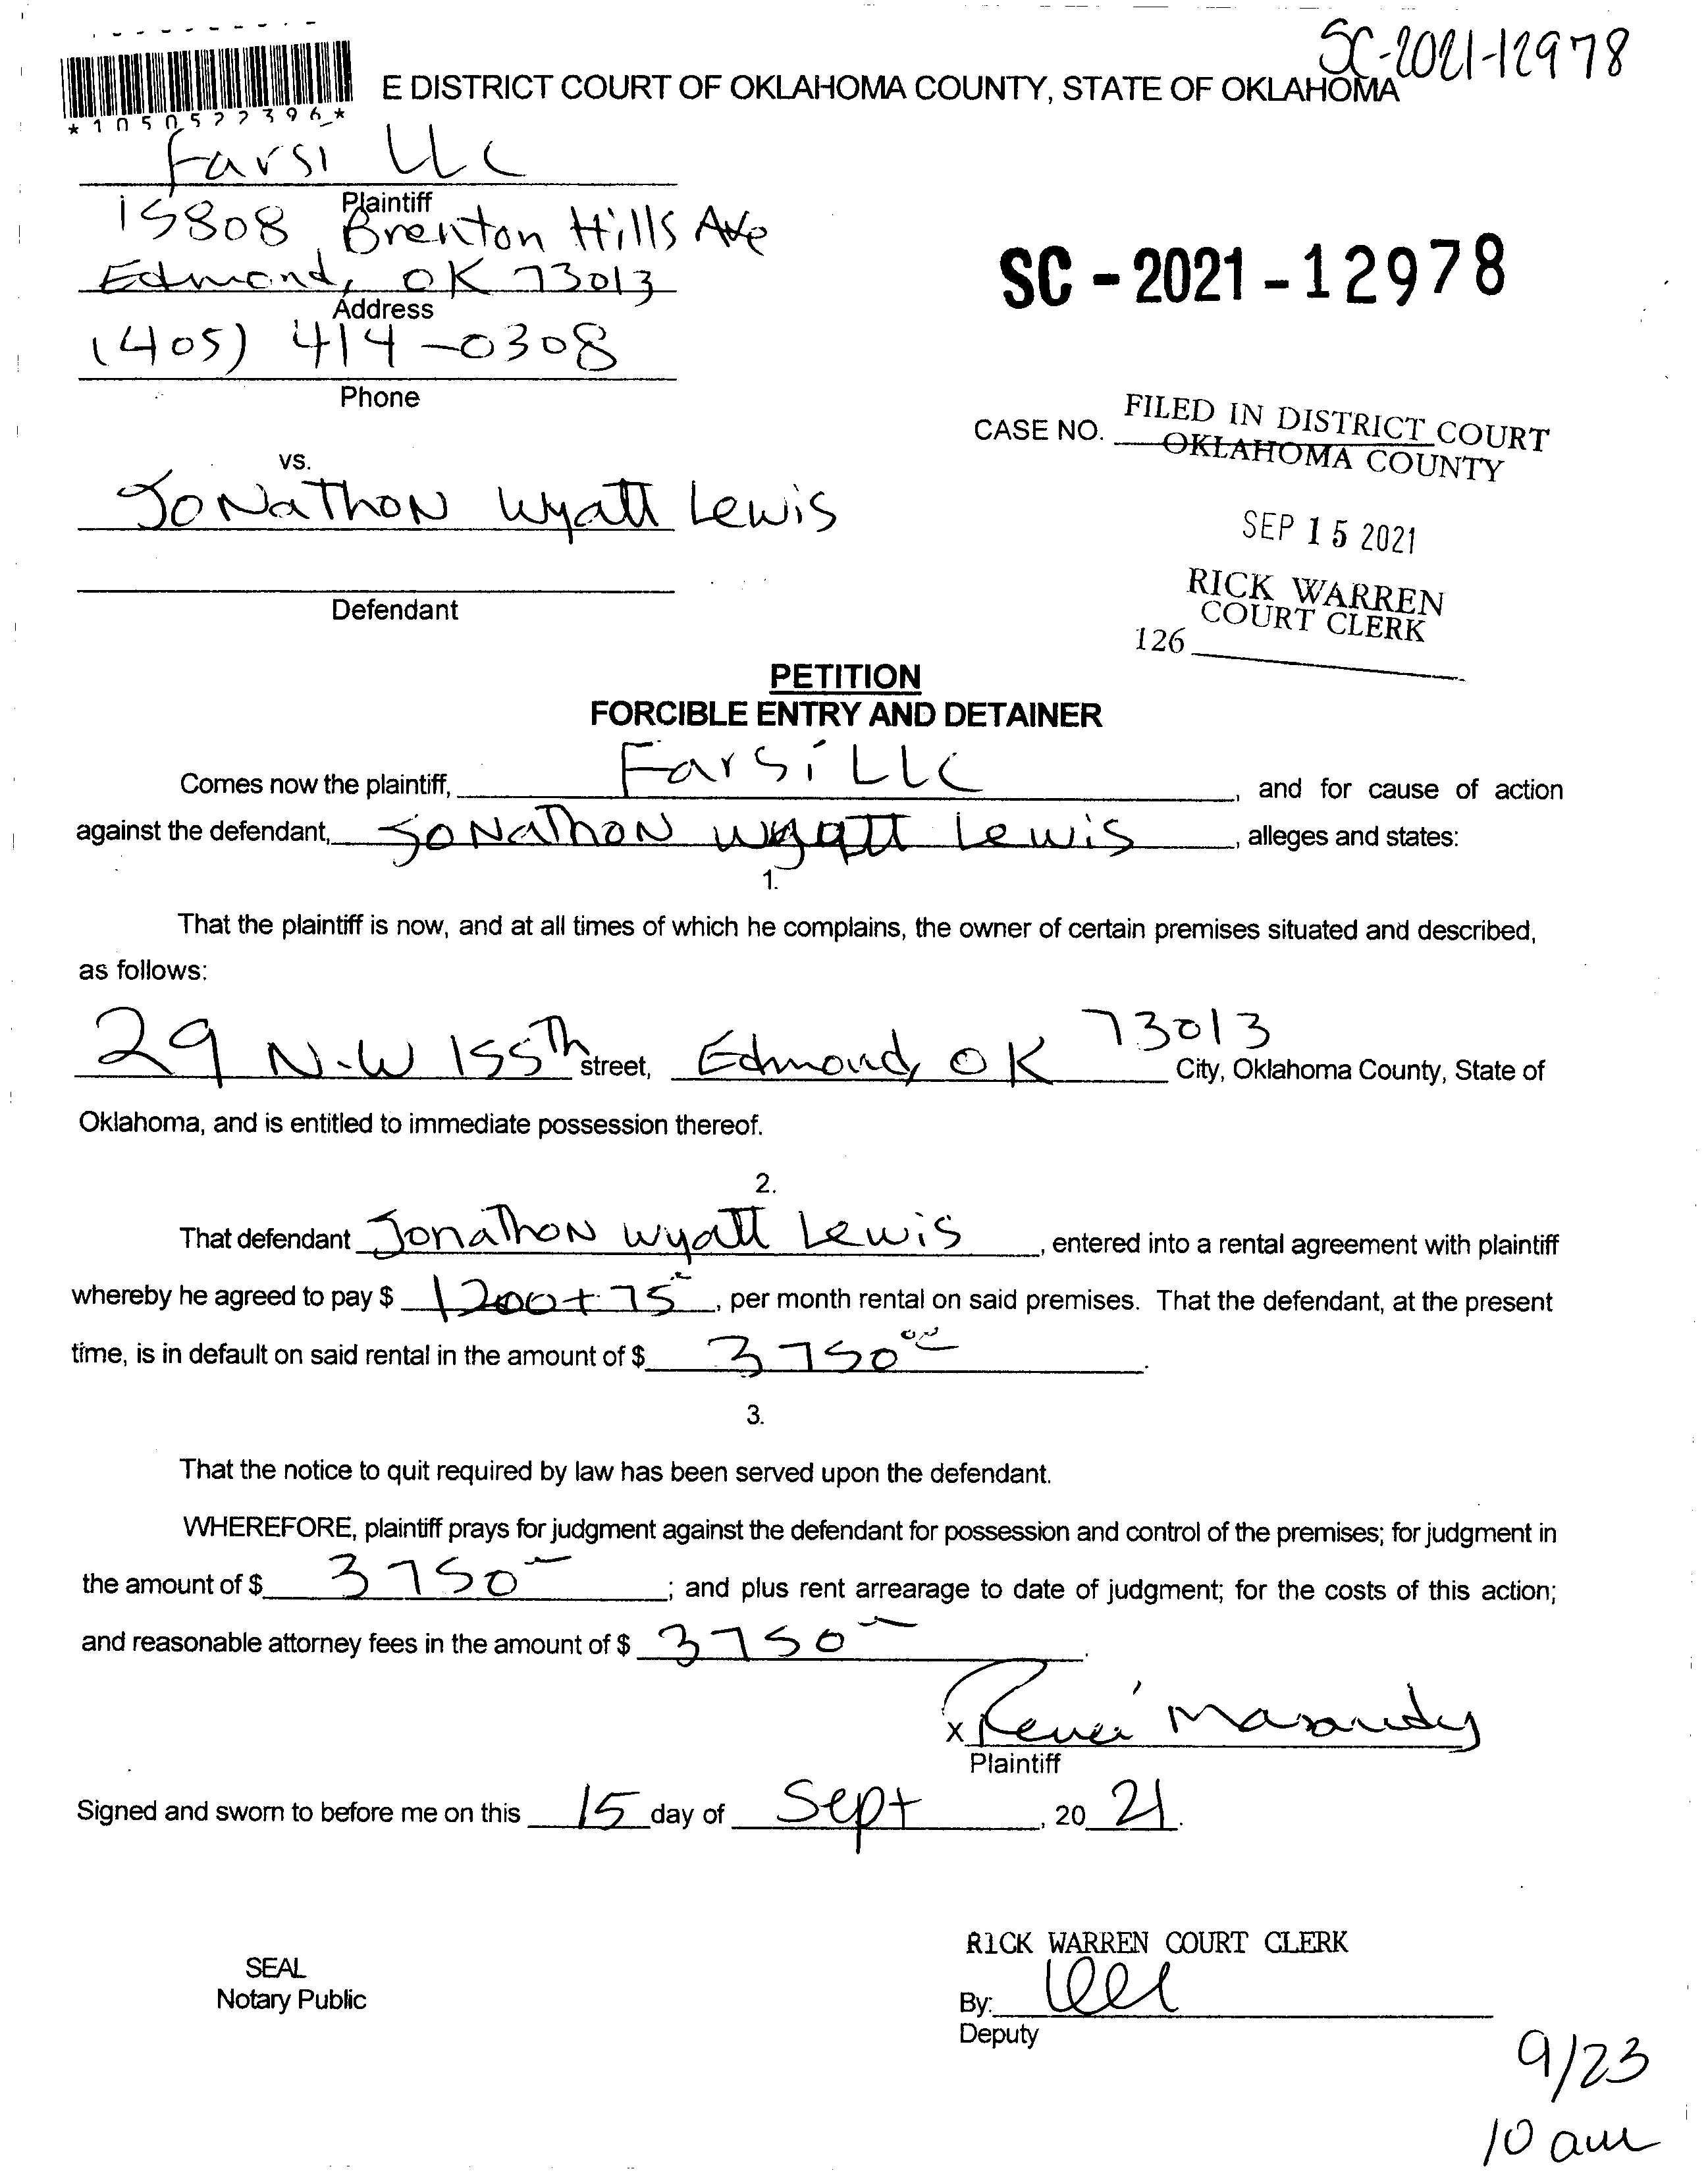 SC-2021-12978
E DISTRICT COURT OF OKLAHOMA COUNTY, STATE OF OKLAHOMA
*1050522396*
Farsi LLC
Plaintiff
15808 Brenton Hills Ave
Edmond, OK 73013
Address
SC-2021-12978
(405) 414-0308
Phone
CASE NO.
FILED IN DISTRICT COURT
OKLAHOMA COUNTY
vs.
Jonathon Wyatt Lewis
SEP 15 2021
Defendant
RICK WARREN
COURT CLERK
126
PETITION
FORCIBLE ENTRY AND DETAINER
Comes now the plaintiff, Farsi LLC, and for cause of action
against the defendant, Jonathon Wyatt Lewis, alleges and states:
1.
That the plaintiff is now, and at all times of which he complains, the owner of certain premises situated and described,
as follows:
29 N.W 155th street, Edmond, OK 73013 City, Oklahoma County, State of
Oklahoma, and is entitled to immediate possession thereof.
2.
That defendant Jonathon Wyatt Lewis, entered into a rental agreement with plaintiff
whereby he agreed to pay $ 1200+75, per month rental on said premises. That the defendant, at the present
time, is in default on said rental in the amount of $ 3750 00.
3.
That the notice to quit required by law has been served upon the defendant.
WHEREFORE, plaintiff prays for judgment against the defendant for possession and control of the premises; for judgment in
the amount of $ 3750; and plus rent arrearage to date of judgment; for the costs of this action;
and reasonable attorney fees in the amount of $ 3750.
X
Plaintiff
Signed and sworn to before me on this 15 day of Sept, 20 21.
RICK WARREN COURT CLERK
SEAL
Notary Public
By:
Deputy
9/23
10 am